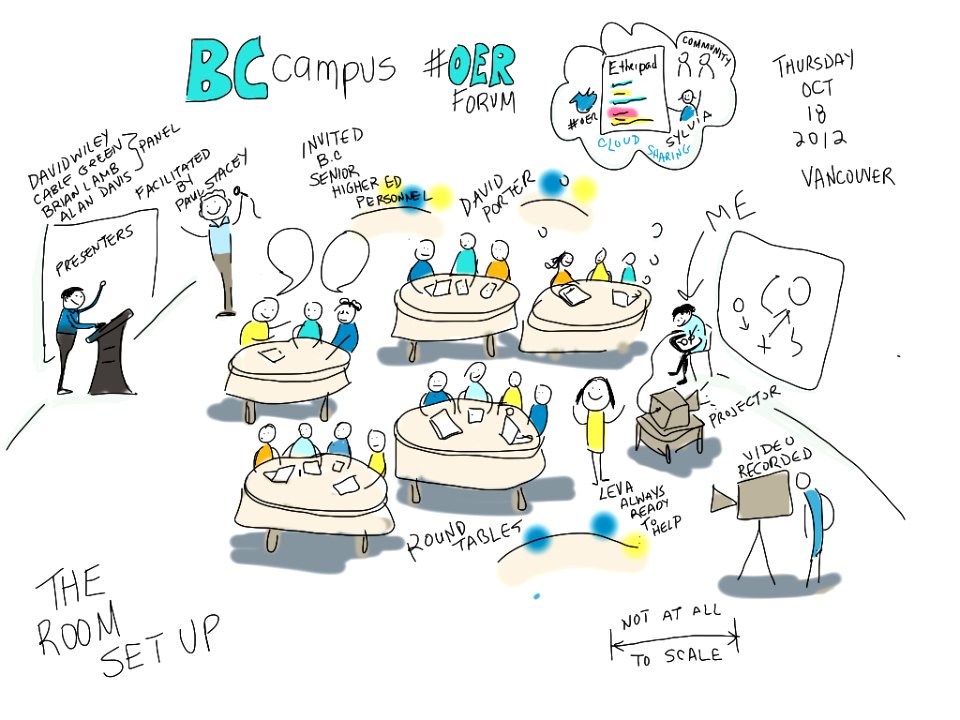 BCcampus #OER
FORUM
Etherpad
COMMUNITY
#OER
SYLVIA
CLOUD SHARING
THURSDAY
OCT
18
2012
VANCOUVER
DAVID WILEY
CABLE GREEN
BRIAN LAMB
ALAN DAVIS
PANEL
FACILITATED
BY
PAUL STACEY
INVITED
B.C
SENIOR
HIGHER ED
PERSONNEL
DAVID
PORTER
ME
PRESENTERS
PROJECTOR
VIDEO
RECORDED
LEVA
ALWAYS
READY
TO
HELP
ROUND
TABLES
THE
ROOM
SET UP
NOT AT ALL
TO SCALE